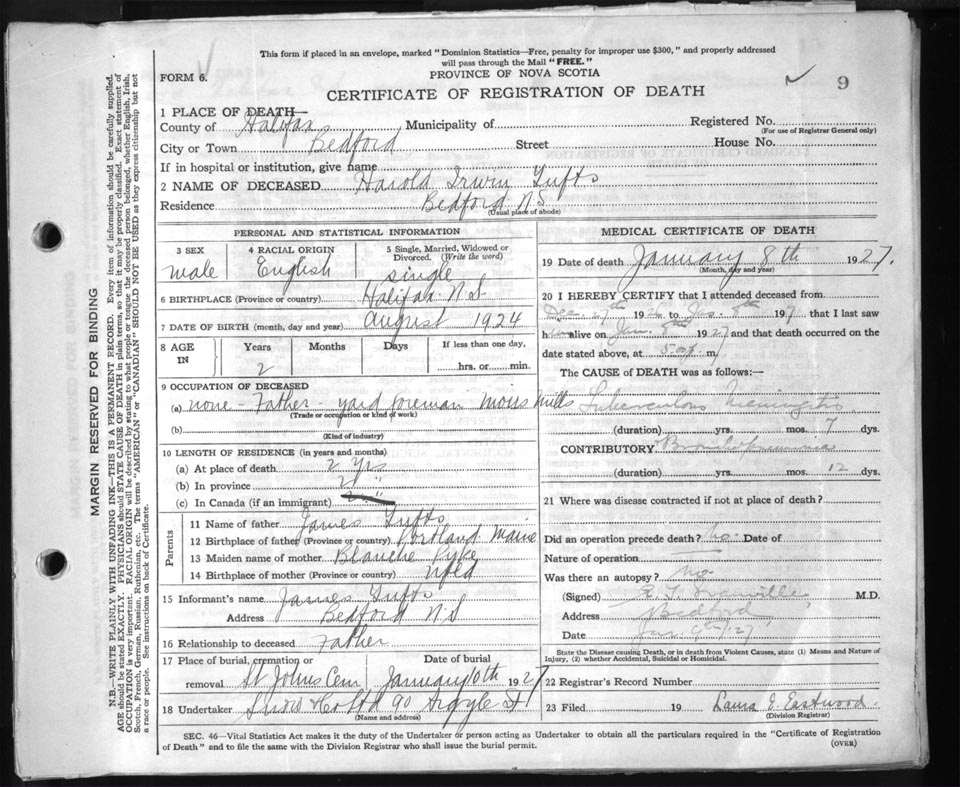 This form if placed in an envelope, marked "Dominion Statistics—Free, penalty for improper use $300," and properly addressed
will pass through the Mail "FREE."
FORM 6.
PROVINCE OF NOVA SCOTIA
9
CERTIFICATE OF REGISTRATION OF DEATH
1 PLACE OF DEATH—
County of Halifax Municipality of Registered No.
(For use of Registrar General only)
City or Town Bedford Street House No.
If in hospital or institution, give name
2 NAME OF DECEASED Harold Irwin Tufts
Residence Bedford N S
(Usual place of abode)
PERSONAL AND STATISTICAL INFORMATION
3 SEX 4 RACIAL ORIGIN 5 Single, Married, Widowed or
Divorced. (Write the word)
male English single
6 BIRTHPLACE (Province or country) Halifax N S
7 DATE OF BIRTH (month, day and year) August 1924
8 AGE IN Years Months Days If less than one day,
2 hrs. or min.
9 OCCUPATION OF DECEASED
(a) none - Father - yard foreman Moirs Mills
(Trade or occupation or kind of work)
(b)
(Kind of industry)
10 LENGTH OF RESIDENCE (in years and months)
(a) At place of death 2 yrs
(b) In province 2 "
(c) In Canada (if an immigrant)
Parents
11 Name of father James Tufts
12 Birthplace of father (Province or country) Portland Maine
13 Maiden name of mother Blanche Pyke
14 Birthplace of mother (Province or country) Nfld
15 Informant's name James Tufts
Address Bedford N S
16 Relationship to deceased Father
17 Place of burial, cremation or Date of burial
removal St Johns Cem January 10th 1927
18 Undertaker Snow & Co Ltd 90 Argyle St
(Name and address)
MEDICAL CERTIFICATE OF DEATH
19 Date of death January 8th 1927.
(Month, day and year)
20 I HEREBY CERTIFY that I attended deceased from
Dec 27th 1926 to Jan. 8th 1927 that I last saw
him alive on Jan. 8th 1927 and that death occurred on the
date stated above, at m
The CAUSE of DEATH was as follows:—
Tuberculous Meningitis
(duration) yrs. mos. 7 dys.
CONTRIBUTORY Bronchopneumonia
(duration) yrs. mos. 12 dys.
21 Where was disease contracted if not at place of death?
Did an operation precede death? No. Date of
Nature of operation
Was there an autopsy? No
(Signed) M.D.
Address Bedford
Date Jan. 9th/27
State the Disease causing Death, or in death from Violent Causes, state (1) Means and Nature of
Injury, (2) whether Accidental, Suicidal or Homicidal.
22 Registrar's Record Number
23 Filed 19 Laura E. Eastwood.
(Division Registrar)
SEC. 46—Vital Statistics Act makes it the duty of the Undertaker or person acting as Undertaker to obtain all the particulars required in the "Certificate of Registration
of Death" and to file the same with the Division Registrar who shall issue the burial permit.
(OVER)
MARGIN RESERVED FOR BINDING
N.B.—WRITE PLAINLY WITH UNFADING INK—THIS IS A PERMANENT RECORD. Every item of information should be carefully supplied.
AGE should be stated EXACTLY. PHYSICIANS should STATE CAUSE OF DEATH in plain terms, so that it may be properly classified. Exact statement of
OCCUPATION is very important. RACIAL ORIGIN will be described by stating to what people or race the deceased person belonged, whether English, Irish,
Scotch, French, German, Russian, Ruthenian, etc. The terms "AMERICAN" or "CANADIAN" SHOULD NOT BE USED as they express citizenship but not
a race or people. See instructions on back of Certificate.